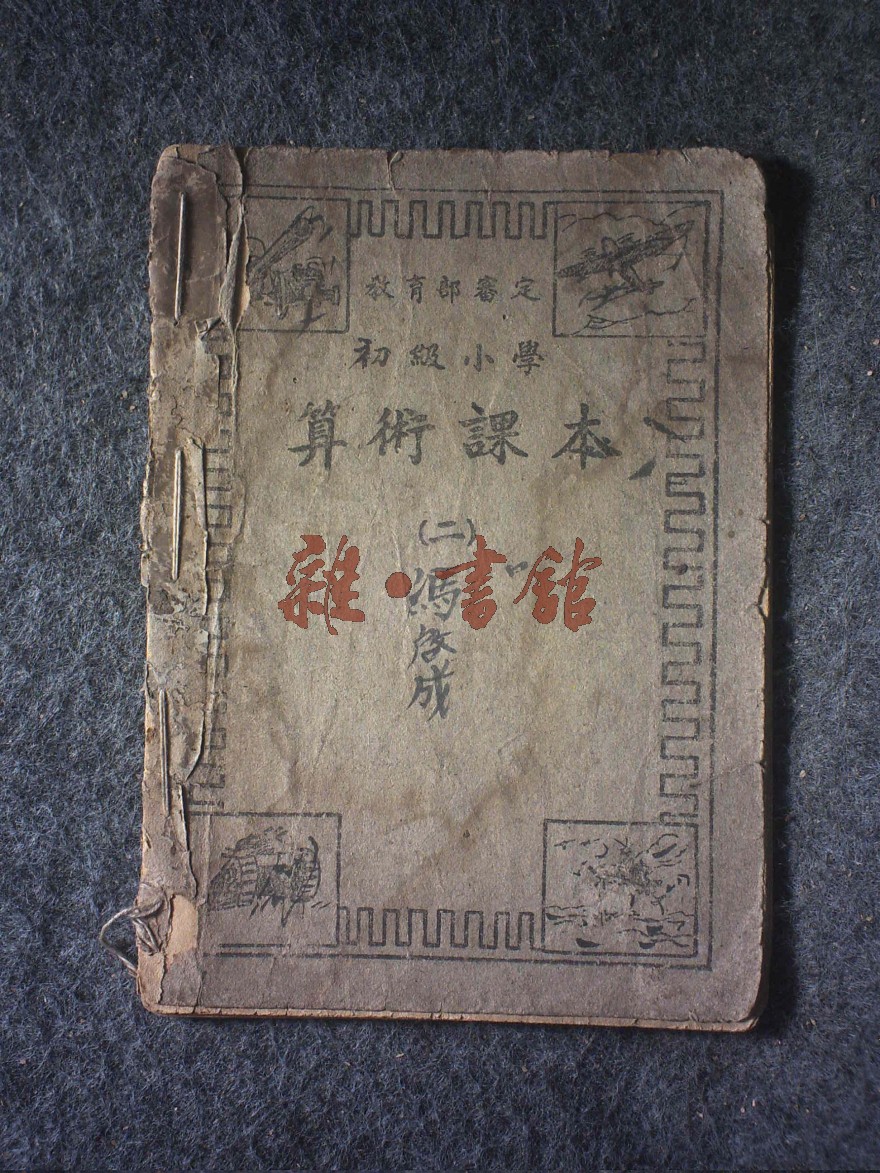 教育部審定
初級小學
算術課本
(二)
雜·書館
馮啓成